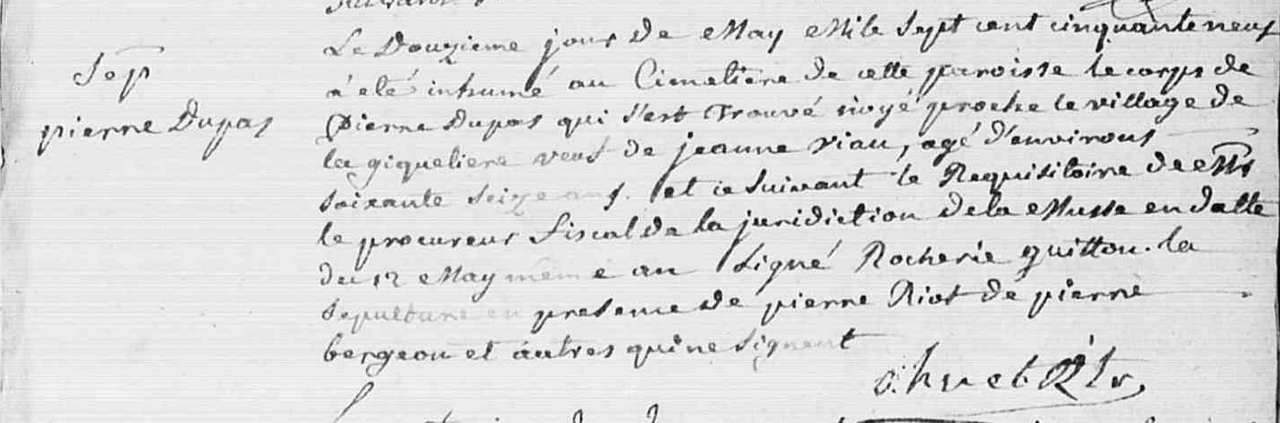 Sep
pierre Dupas
Le Douzieme jour de May Mile Sept cent cinquante neuf
a eté inhumé au Cimetière de cette paroisse le corps de
pierre Dupas qui s'est trouvé noyé proche le village de
la giqueliere veuf de jeanne viau, agé d'environs
soixante seize ans. et ce suivant le Requisitoire de Mr
le procureur fiscal de la juridiction de la Musse en datte
du 12 May même an Signé Rocherie guitton. la
Sepulture en presence de pierre Riot de pierre
bergeon et autres qui ne signent
huet